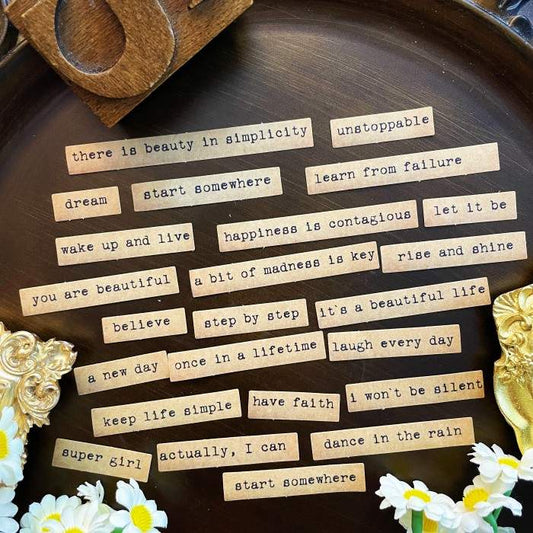 there is beauty in simplicity
unstoppable
learn from failure
dream
start somewhere
happiness is contagious
let it be
wake up and live
a bit of madness is key
rise and shine
you are beautiful
it's a beautiful life
believe
step by step
once in a lifetime
laugh every day
a new day
i won't be silent
keep life simple
have faith
dance in the rain
super girl
actually, I can
start somewhere